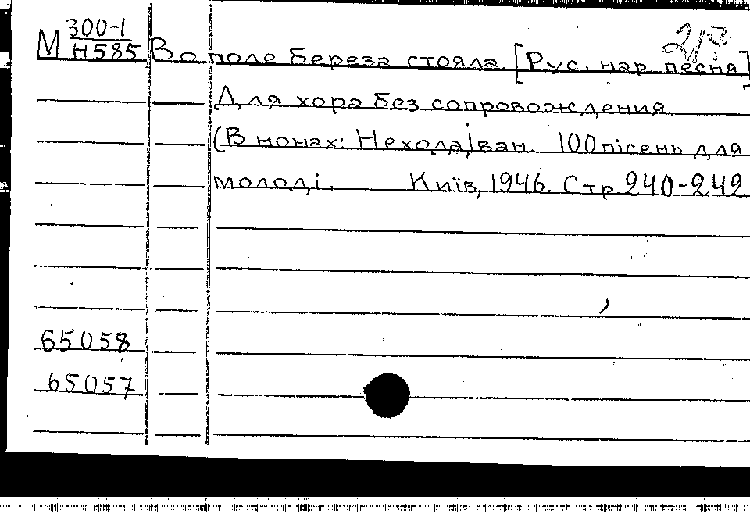 М 300-1
Н585 Во поле береза стояла [Рус. нар. песня]
Для хора без сопровождения
(В нонах: Нехода Iван. 100 пісень для
молоді. Київ, 1946. Стр 240-242
65058
65057